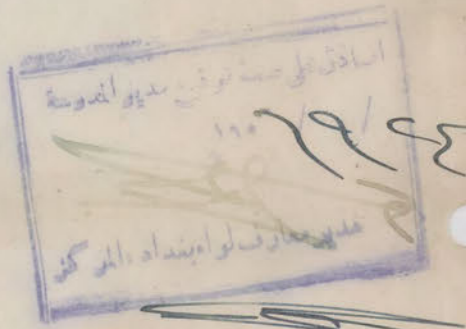 اصادق على صحة توقيع مدير المدرسة
١٩٥ / ٩ / ٢٤
مدير معارف لواء بغداد ، المركز